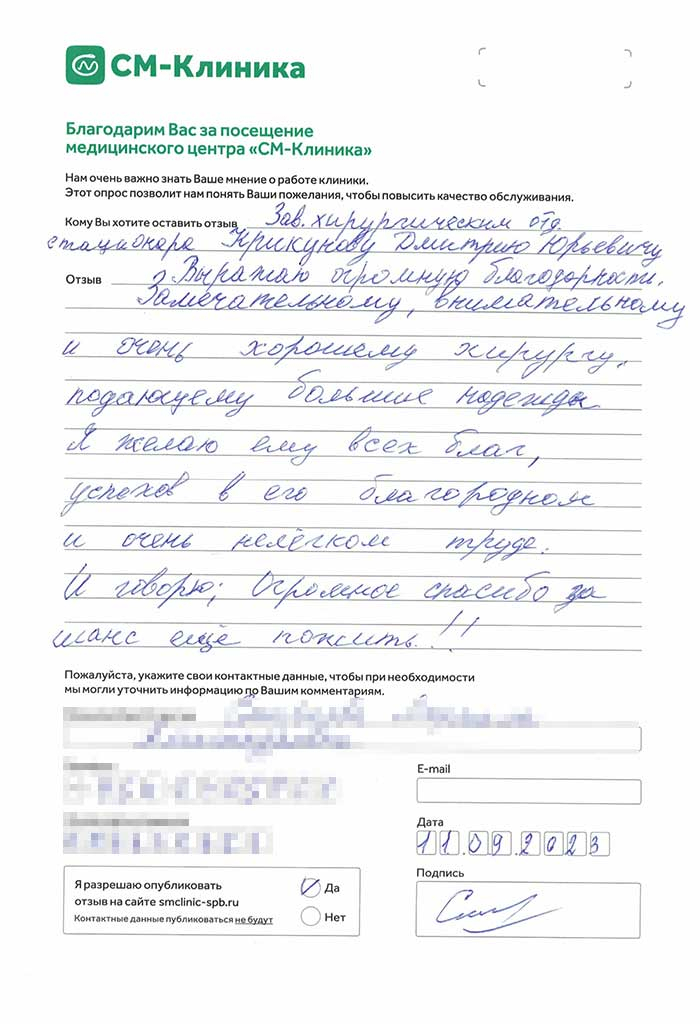 СМ-Клиника
Благодарим Вас за посещение
медицинского центра «СМ-Клиника»
Нам очень важно знать Ваше мнение о работе клиники.
Этот опрос позволит нам понять Ваши пожелания, чтобы повысить качество обслуживания.
Кому Вы хотите оставить отзыв Зав. хирургическим отд.
стационара Крикунову Дмитрию Юрьевичу
Отзыв Выражаю огромную благодарность.
Замечательному, внимательному
и очень хорошему хирургу,
подающему большие надежды
Я желаю ему всех благ,
успехов в его благородном
и очень нелёгком труде.
И говорю; Огромное спасибо за
шанс ещё пожить!!
Пожалуйста, укажите свои контактные данные, чтобы при необходимости
мы могли уточнить информацию по Вашим комментариям.
E-mail
Дата
11.09.2023
Я разрешаю опубликовать
отзыв на сайте smclinic-spb.ru
Контактные данные публиковаться не будут
Да
Нет
Подпись